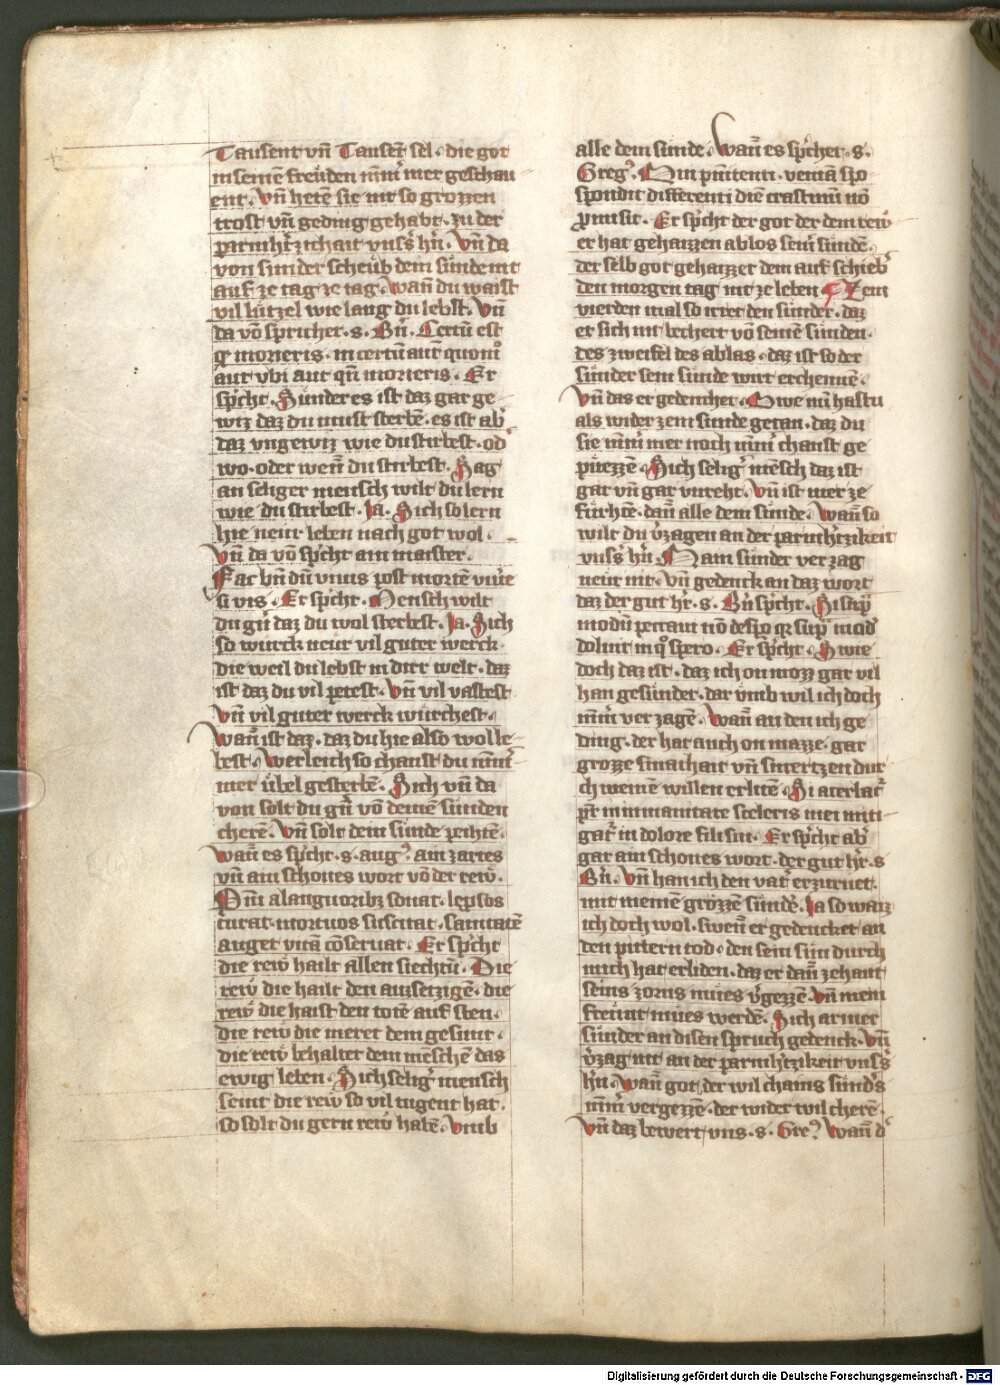 Tausent vn̄ Tausēt sel · die got
in seinen freuden nim̄ mer geschau
ent · vn̄ heten sie nit so grozzen
trost vn̄ geding gehabt · zu der
parmhʼtzichait vnsʼs hʼn · vn̄ da
von sunder scheub dein sunde nit
auf ze tag ze tag · wan̄ du waist
vil lutzel wie lang du lebst · vn̄
da vō sprichet · s · Bʼn · Certū est
morieris · incertū autʼ quom̊
aut vbi aut qn̄ morieris · Er
spʼcht · Sunder es ist daz gar ge
wiz daz du must sterbē · es ist abʼ
daz vngewiz wie du stirbest · odʼ
wo · oder wen̄ du stirbest · Sag
an seliger mensch wilt du lern
wie du stirbest · Ja · Sich so lern
hie neur leben nach got wol ·
vn̄ da vō spʼcht ain maister ·
Fac bn̄ dū viuis post mortē viuʼe
si vis · Er spʼcht · Mensch wilt
du gnʼ daz du wol sterbest · Ja · Sich
so wurck neur vil guter werck ·
die weil du lebst in dirr welt · daz
ist daz du vil petest · vn̄ vil vastest
vn̄ vil guter werck wurchest ·
wan̄ ist daz · daz du hie also wol le
best · werleich so chanst du nim̄
mer übel gesterbē · Sich vn̄ da
von solt du gnʼ vō deinē sunden
cherē · vn̄ solt dein sunde peihtē ·
wan̄ es spʼcht · s · augꝰ · ain zartes
vn̄ ain schones wort vō der rew ·
Pn̄ia languorib3 sonat · leprsos
curat · mortuos suscitat · sanitatē
auget vitā cōseruat · Er spʼcht
die rew hailt allen siechtū · Die
rew die hailt den auzsetzigē · die
rew die haist den totē auf sten ·
die rew die meret dem gesunt ·
die rew behaltet dem mēschē das
ewig leben · Sich seligʼ mensch
seint die rew so vil tugent hat ·
so solt du gern rew habē · vmb
alle dein sunde · wan̄ es spʼchet · s ·
Gregꝰ · Qui penitenti · veniā spo
spondit differenti diē crastinū nō
promisit · Er spʼcht der got der dem rewʼ
er hat gehaizzen ablos seinʼ sundē ·
der selb got gehaizzet dem auf schiebʼ
den morgen tag nit ze leben · Zem
vierden mal so irret den sunder · daz
er sich nit bechert vō seinē sunden ·
des zweifel des ablas · daz ist so der
sunder sein sunde wirt erchennē ·
vn̄ das er gedencket · Owe nū hastu
als wider zein sunde getan · daz du
sie nim̄ mer noch nim̄ chanst ge
puezzē · Sich seligʼ mēsch daz ist
gar vn̄ gar vnreht · vn̄ ist mer ze
furhtē · dan̄ alle dein sunde · wan̄ so
wilt du vʼzagen an der parmhʼtzikeit
vnsʼs hʼn · Nain sunder verzag
neur nit · vn̄ gedenck an daz wort
daz der gut hʼr · s · Bʼn spʼcht · Si sup
modū peccaui nō despo qʼ sup mod
doluit in qͦ spero · Er spʼcht · Swie
doch daz ist · daz ich on mozz gar vil
han gesundet · dar vmb wil ich doch
nim̄ ver zagē · wan̄ an den ich ge
ding · der hat auch on mazze · gar
grozze smachait vn̄ smertzen dur
ch meinē willen erlitē · Si
pʼr in inmanitate sceleris mei miti
gatʼ in dolore filii sui · Er spʼcht abʼ
gar ain schones wort · der gut hʼr · s
Bʼn · vn̄ han ich den vatʼ erzurnet ·
mit meinē grozzē sundē · Ja so waiz
ich doch wol · swen̄ er gedencket an
den pittern tod · den sein sun durch
mich hat erliden · daz er dan̄ zehant
seins zorns mues vʼgezzē · vn̄ mein
freunt mues werdē · Sich armer
sunder an disen spruch gedenck · vn̄
vʼzag nit an der parmhʼtzikeit vnsʼs
hʼn · wan̄ got der wil chains sundʼs
nim̄ vergezzē · der wider wil cherē ·
vn̄ daz bewert vns · s · Greꝰ · wan̄ dʼ
Digitalisierung gefördert durch die Deutsche Forschungsgemeinschaft - DFG